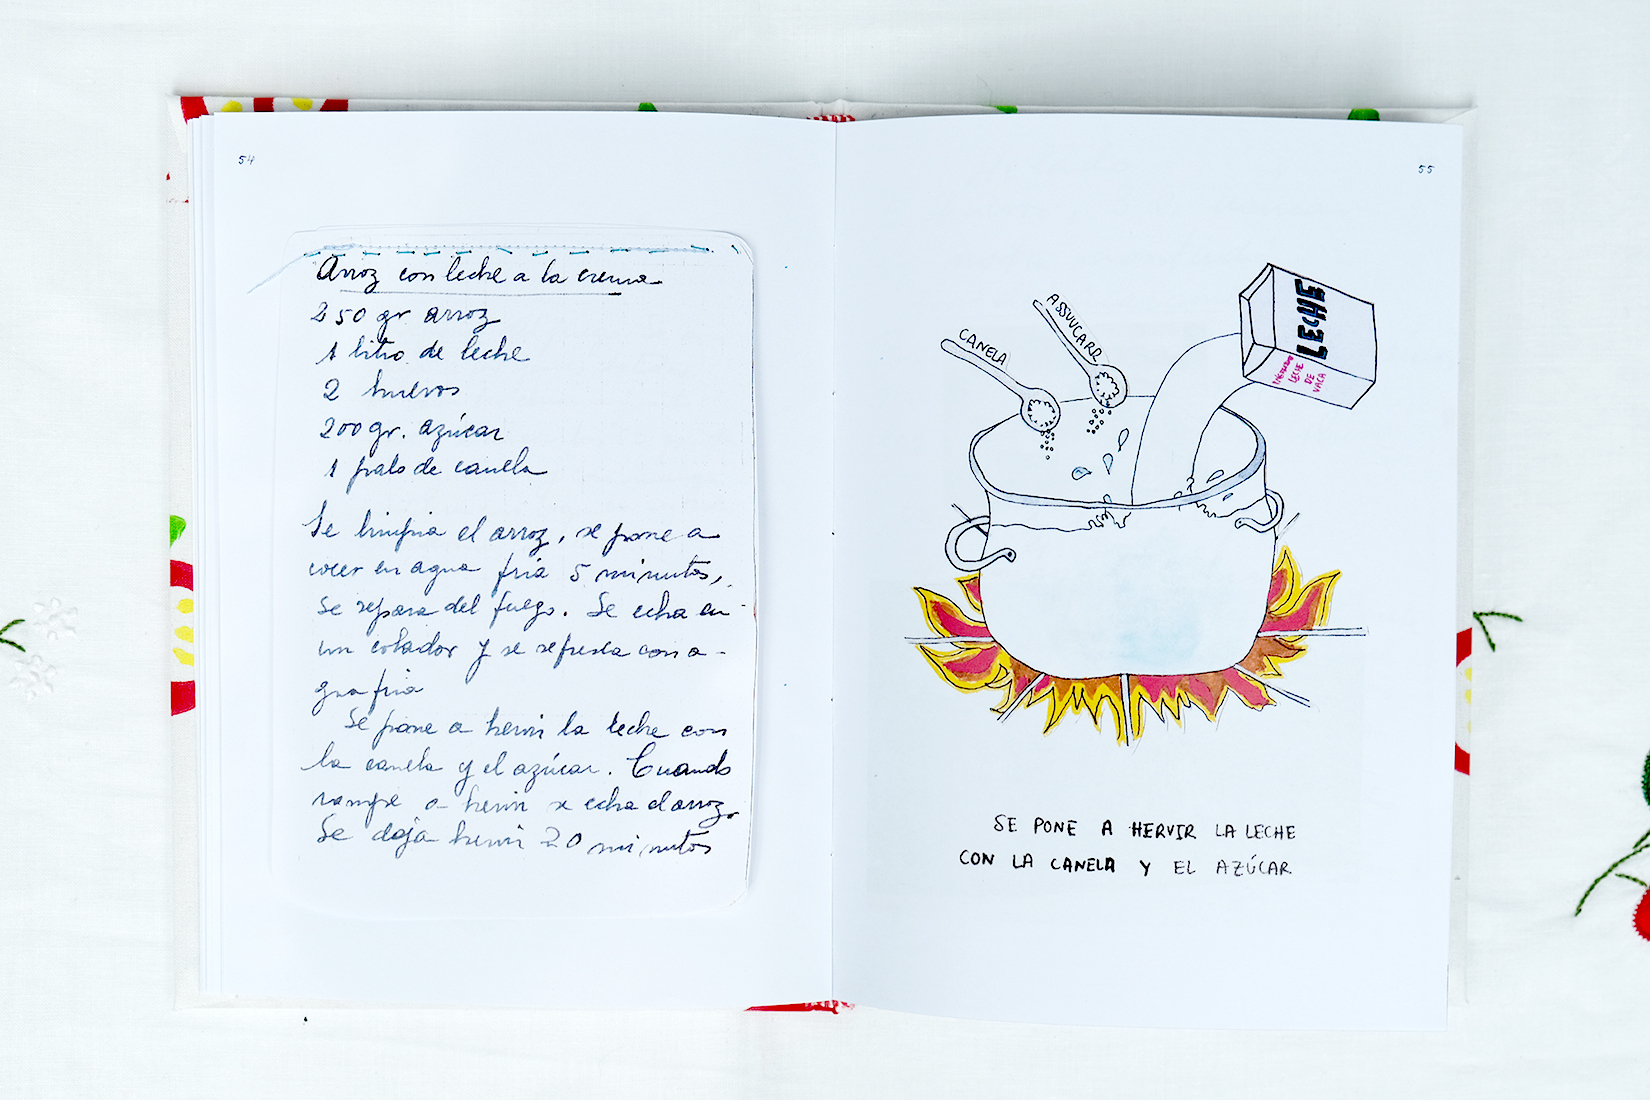 54
Arroz con leche a la crema
250 gr arroz
1 litro de leche
2 huevos
200 gr. azúcar
1 palo de canela
Se limpia el arroz, se pone a
cocer en agua fria 5 minutos,
Se separa del fuego. Se echa en
un colador y se refresca con a-
gua fria
Se pone a hervir la leche con
la canela y el azúcar. Cuando
rompe a hervir se echa el arroz.
Se deja hervir 20 minutos
55
CANELA
ASSUUCARR
LECHE
LECHE
DE
VACA
SE PONE A HERVIR LA LECHE
CON LA CANELA Y EL AZÚCAR